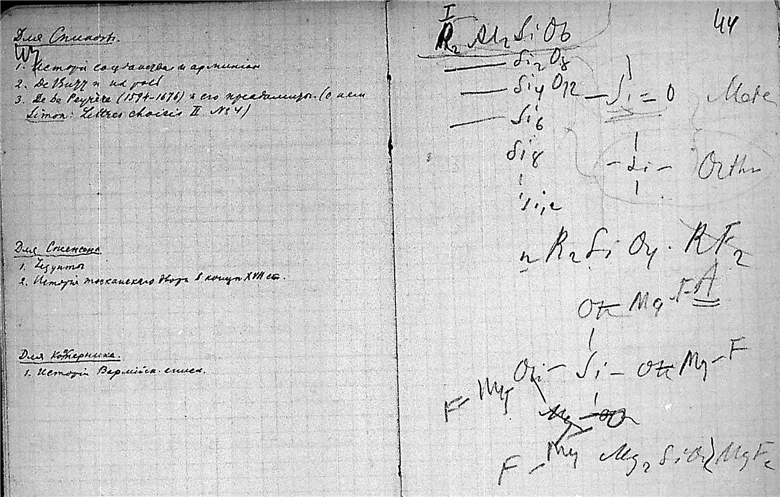 Для Спинозы.
1. Исторія социніанства и арминіан
2. De
3. De La Peyrère (1594-1676) и его преадамиты. (о нем
Simon: Lettres choisis II № 4)
Для Стенсена
1. Іезуиты
2. Исторія тосканскаго двора в концѣ XVII ст.
Для Коперника.
1. Исторія Вармійск. еписк.
44
I
R₂ Al₂ Si O₆
Si₂ O₈
Si₄ O₁₂
Si₆
Si₈
Si₁₂
– Si = O Meta
– Si – Ortho
n R₂ Si O₄ . RF₂
Mg-F
Si – Mg – F
F – Mg
Mg
F – Mg Mg₂ Si O₄ Mg F₂